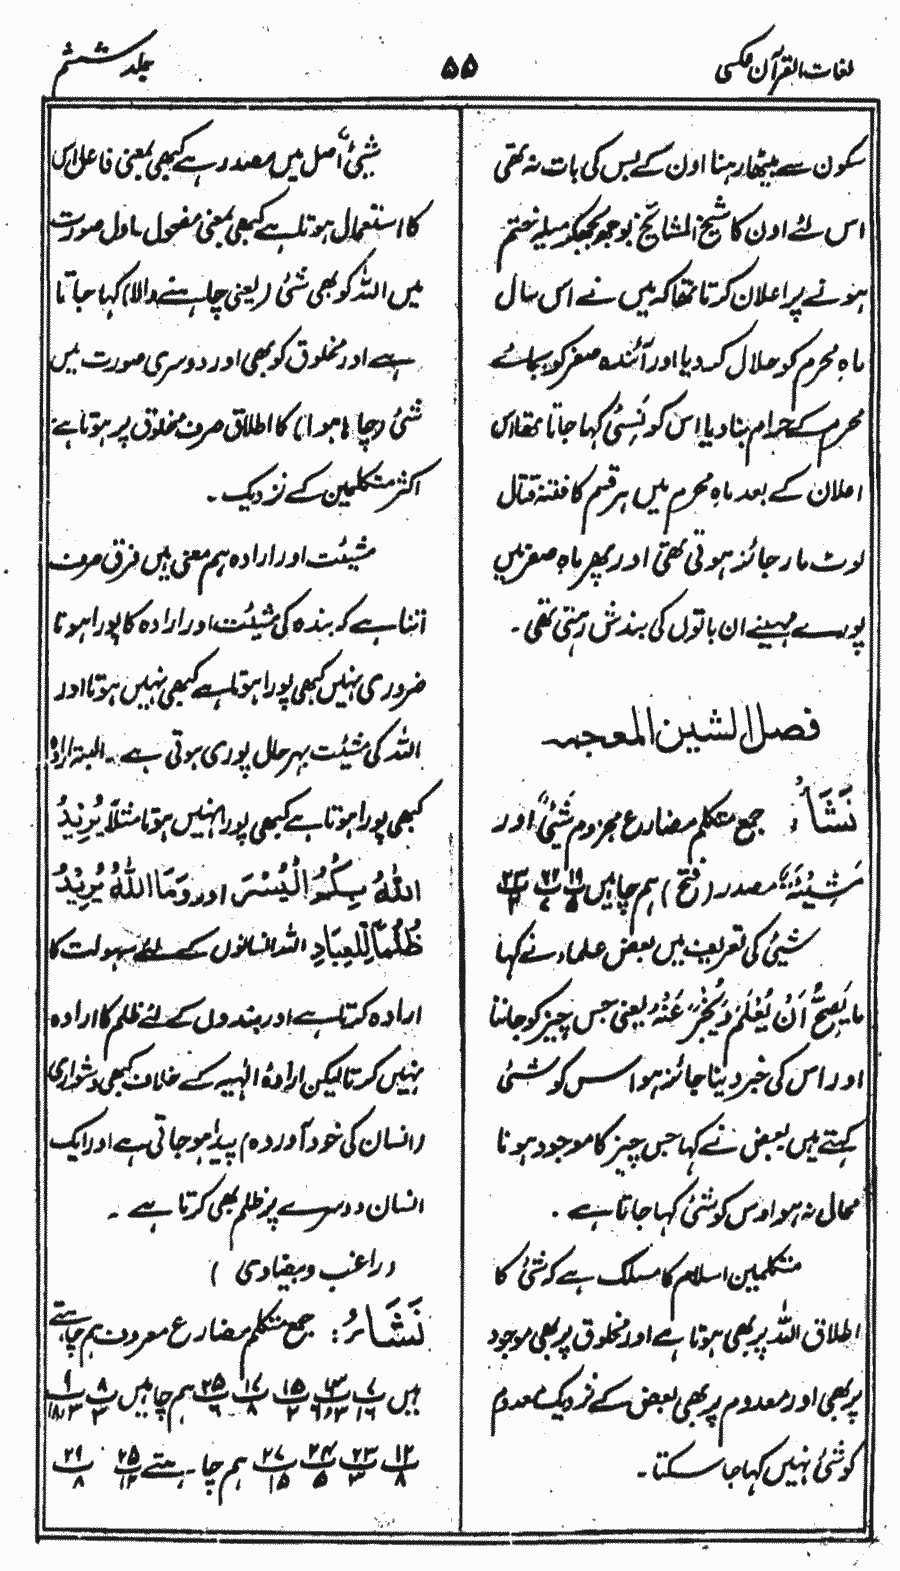 لغات القرآن مکسی
۵۵
جلد ششم
سکون سے بیٹھا رہنا اون کے بس کی بات نہ تھی
اس لئے اون کا شیخ المشائخ بوجو مجھکو میلہ ختم
ہونے پر اعلان کرتا تھا کہ میں نے اس سال
ماہ محرم کو حلال کر دیا اور آئندہ صفر کو بجائے
محرم کے حرام بنا دیا اس کو نسئ کہا جاتا تھا اس
اعلان کے بعد ماہ محرم میں ہر قسم کا فتنہ قتال
لوٹ مار جائز ہوتی تھی اور پھر ماہ صفر میں
پورے مہینے ان باتوں کی بندش رہتی تھی۔
فصل الشین المعجمہ
نَشَاءُ جمع متکلم مضارع مجزوم شَیْئٌ اور
مَشِیْئَۃٌ مصدر (فتح) ہم چاہیں
شیئ کی تعریف میں بعض علماء نے کہا
مَا یَصِحُّ اَنْ یُعْلَمَ وَیُخْبَرَ عَنْہُ یعنی جس چیز کو جاننا
اور اس کی خبر دینا جائز ہو اس کو شئی
کہتے ہیں بعض نے کہا جس چیز کا موجود ہونا
محال نہ ہو اوس کو شئ کہا جاتا ہے۔
متکلمین اسلام کا مسلک ہے کہ شئ کا
اطلاق اللہ پر بھی ہوتا ہے اور مخلوق پر بھی موجود
پر بھی اور معدوم پر بھی بعض کے نزدیک معدوم
کو شئ نہیں کہا جا سکتا۔
شَیْئٌ اصل میں مصدر ہے کبھی بمعنی فاعل اس
کا استعمال ہوتا ہے کبھی بمعنی مفعول۔ اول صورت
میں اللہ کو بھی شئ (یعنی چاہنے والا) کہا جاتا
ہے اور مخلوق کو بھی اور دوسری صورت میں
شئ (چاہا ہوا) کا اطلاق صرف مخلوق پر ہوتا ہے
اکثر متکلمین کے نزدیک۔
مشیئت اور ارادہ ہم معنی ہیں فرق صرف
اتنا ہے کہ بندہ کی مشیئت اور ارادہ کا پورا ہونا
ضروری نہیں کبھی پورا ہوتا ہے کبھی نہیں ہوتا اور
اللہ کی مشیئت بہر حال پوری ہوتی ہے۔ البتہ ارادہ
کبھی پورا ہوتا ہے کبھی پورا نہیں ہوتا مثلاً یُرِیْدُ
اللّٰہُ بِکُمُ الْیُسْرَ اور وَمَا اللّٰہُ یُرِیْدُ
ظُلْمًا لِّلْعِبَادِ اللہ انسانوں کے لئے سہولت کا
ارادہ کرتا ہے اور بندوں کے لئے ظلم کا ارادہ
نہیں کرتا لیکن ارادۂ الٰہیہ کے خلاف کبھی دشواری
(انسان کی خود آوردہ) پیدا ہو جاتی ہے اور ایک
انسان دوسرے پر ظلم بھی کرتا ہے۔
(راغب وبیضاوی)
نَشَاءُ: جمع متکلم مضارع معروف ہم چاہتے
ہیں ۷/۱۶ ۱۳/۳و۶ ۱۵/۲ ۱۷/۸ ۲۵/۶ ہم چاہیں ۸/۲ ۹/۳و۱۸
۱۲/۸ ۲۳/۳ ۲۴/۵ ۲۷/۱۵ ہم چاہتے ۲۵/۱۲ ۲۹/۸